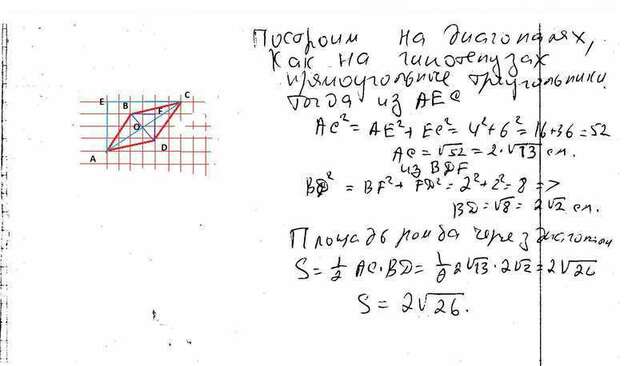 Построим на диагоналях,
как на гипотенузах
прямоугольные треугольники.
Тогда из AEC
AC² = AE² + EC² = 4² + 6² = 16 + 36 = 52
AC = √52 = 2·√13 см.
из BDF
BD² = BF² + FD² = 2² + 2² = 8 =>
BD = √8 = 2√2 см.
Площадь ромба через диагонали
S = 1/2 AC·BD = 1/2 2√13 · 2√2 = 2√26
S = 2√26.
E
B
F
C
O
A
D